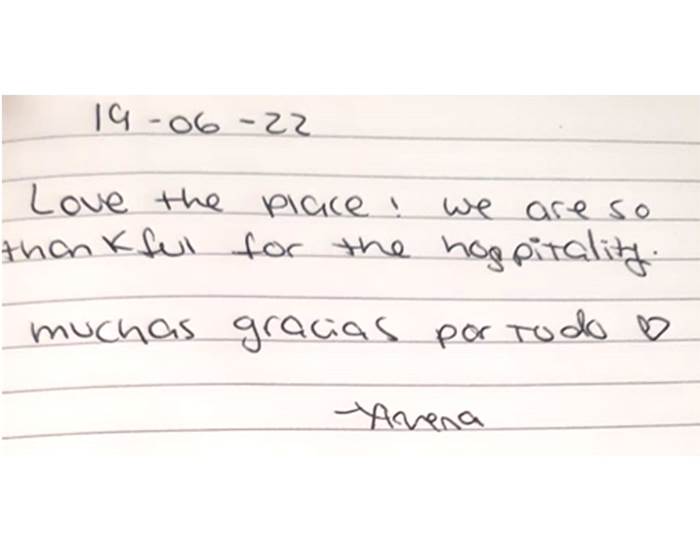 19-06-22
Love the place! we are so
thankful for the hospitality.
muchas gracias por todo ♡